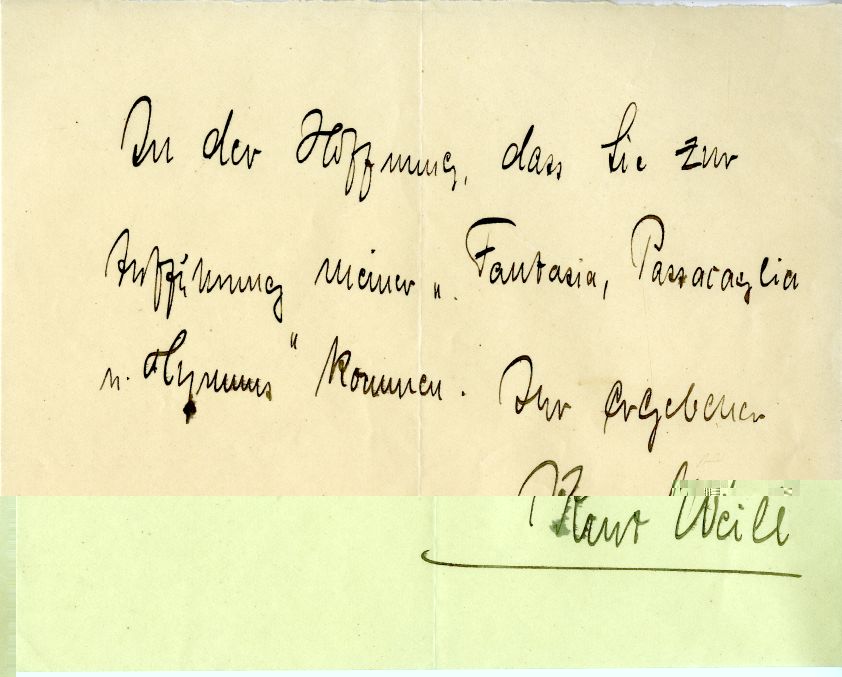 In der Hoffnung, dass Sie zur
Aufführung meiner „Fantasia, Passacaglia
u. Hymnus" kommen. Ihr ergebener
Kurt Weill